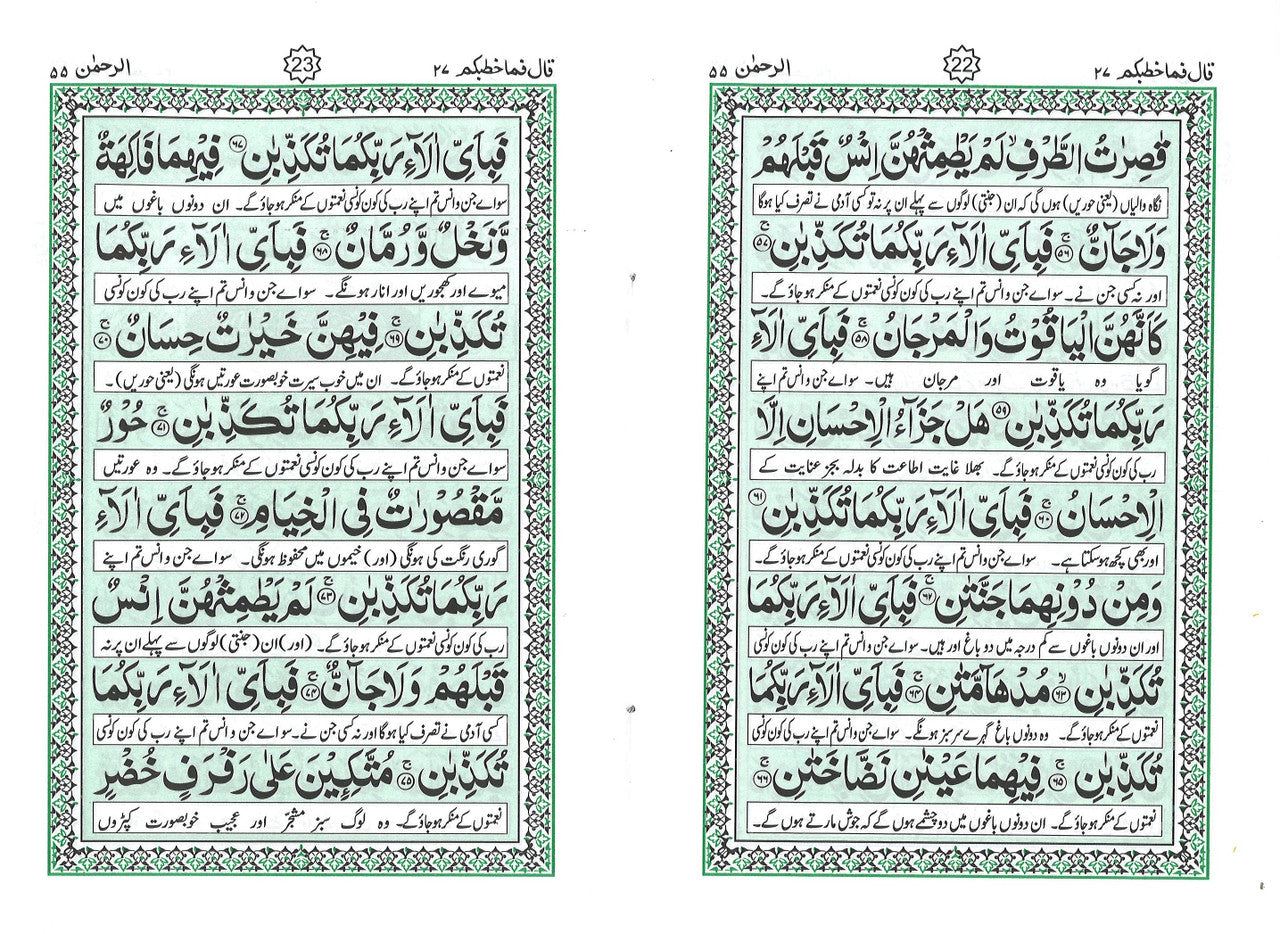 قال فما خطبکم ۲۷
22
الرحمٰن ۵۵
قٰصِرٰتُ الطَّرْفِ ۙ لَمْ يَطْمِثْهُنَّ اِنْسٌ قَبْلَهُمْ
نگاہ والیاں (یعنی حوریں) ہوں گی کہ ان (جنتی) لوگوں سے پہلے ان پر نہ تو کسی آدمی نے تصرف کیا ہوگا
وَلَا جَآنٌّ ۚ﴿۵۶﴾ فَبِاَىِّ اٰلَآءِ رَبِّكُمَا تُكَذِّبٰنِ ۚ﴿۵۷﴾
اور نہ کسی جن نے۔ سواے جن وانس تم اپنے رب کی کون کونسی نعمتوں کے منکر ہوجاؤ گے۔
كَاَنَّهُنَّ الْيَاقُوْتُ وَالْمَرْجَانُ ۚ﴿۵۸﴾ فَبِاَىِّ اٰلَآءِ
گویا وہ یاقوت اور مرجان ہیں۔ سواے جن وانس تم اپنے
رَبِّكُمَا تُكَذِّبٰنِ ﴿۵۹﴾ هَلْ جَزَآءُ الْاِحْسَانِ اِلَّا
رب کی کون کونسی نعمتوں کے منکر ہوجاؤ گے۔ بھلا غایت اطاعت کا بدلہ بجز عنایت کے
الْاِحْسَانُ ۚ﴿۶۰﴾ فَبِاَىِّ اٰلَآءِ رَبِّكُمَا تُكَذِّبٰنِ ﴿۶۱﴾
اور بھی کچھ ہوسکتا ہے۔ سواے جن وانس تم اپنے رب کی کون کونسی نعمتوں کے منکر ہوجاؤ گے۔
وَمِنْ دُوْنِهِمَا جَنَّتٰنِ ۚ﴿۶۲﴾ فَبِاَىِّ اٰلَآءِ رَبِّكُمَا
اور ان دونوں باغوں سے کم درجہ میں دو باغ اور ہیں۔ سواے جن وانس تم اپنے رب کی کون کونسی
تُكَذِّبٰنِ ۙ﴿۶۳﴾ مُدْهَآمَّتٰنِ ۚ﴿۶۴﴾ فَبِاَىِّ اٰلَآءِ رَبِّكُمَا
نعمتوں کے منکر ہوجاؤ گے۔ وہ دونوں باغ گہرے سرسبز ہونگے۔ سواے جن وانس تم اپنے رب کی کون کونسی
تُكَذِّبٰنِ ۚ﴿۶۵﴾ فِيْهِمَا عَيْنٰنِ نَضَّاخَتٰنِ ۚ﴿۶۶﴾
نعمتوں کے منکر ہوجاؤ گے۔ ان دونوں باغوں میں دو چشمے ہوں گے کہ جوش مارتے ہوں گے۔
قال فما خطبکم ۲۷
23
الرحمٰن ۵۵
فَبِاَىِّ اٰلَآءِ رَبِّكُمَا تُكَذِّبٰنِ ﴿۶۷﴾ فِيْهِمَا فَاكِهَةٌ
سواے جن وانس تم اپنے رب کی کون کونسی نعمتوں کے منکر ہوجاؤ گے۔ ان دونوں باغوں میں
وَّنَخْلٌ وَّرُمَّانٌ ۚ﴿۶۸﴾ فَبِاَىِّ اٰلَآءِ رَبِّكُمَا
میوے اور کھجوریں اور انار ہونگے۔ سواے جن وانس تم اپنے رب کی کون کونسی
تُكَذِّبٰنِ ۚ﴿۶۹﴾ فِيْهِنَّ خَيْرٰتٌ حِسَانٌ ۚ﴿۷۰﴾
نعمتوں کے منکر ہوجاؤ گے۔ ان میں خوب سیرت خوبصورت عورتیں ہونگی (یعنی حوریں)۔
فَبِاَىِّ اٰلَآءِ رَبِّكُمَا تُكَذِّبٰنِ ۚ﴿۷۱﴾ حُوْرٌ
سواے جن وانس تم اپنے رب کی کون کونسی نعمتوں کے منکر ہوجاؤ گے۔ وہ عورتیں
مَّقْصُوْرٰتٌ فِى الْخِيَامِ ۚ﴿۷۲﴾ فَبِاَىِّ اٰلَآءِ
گوری رنگت کی ہونگی (اور) خیموں میں محفوظ ہونگی۔ سواے جن وانس تم اپنے
رَبِّكُمَا تُكَذِّبٰنِ ۚ﴿۷۳﴾ لَمْ يَطْمِثْهُنَّ اِنْسٌ
رب کی کون کونسی نعمتوں کے منکر ہوجاؤ گے۔ (اور) ان (جنتی) لوگوں سے پہلے ان پر نہ
قَبْلَهُمْ وَلَا جَآنٌّ ۚ﴿۷۴﴾ فَبِاَىِّ اٰلَآءِ رَبِّكُمَا
کسی آدمی نے تصرف کیا ہوگا اور نہ کسی جن نے۔ سواے جن وانس تم اپنے رب کی کون کونسی
تُكَذِّبٰنِ ۚ﴿۷۵﴾ مُتَّكِـِٕيْنَ عَلٰى رَفْرَفٍ خُضْرٍ
نعمتوں کے منکر ہوجاؤ گے۔ وہ لوگ سبز مشجّر اور عجیب خوبصورت کپڑوں